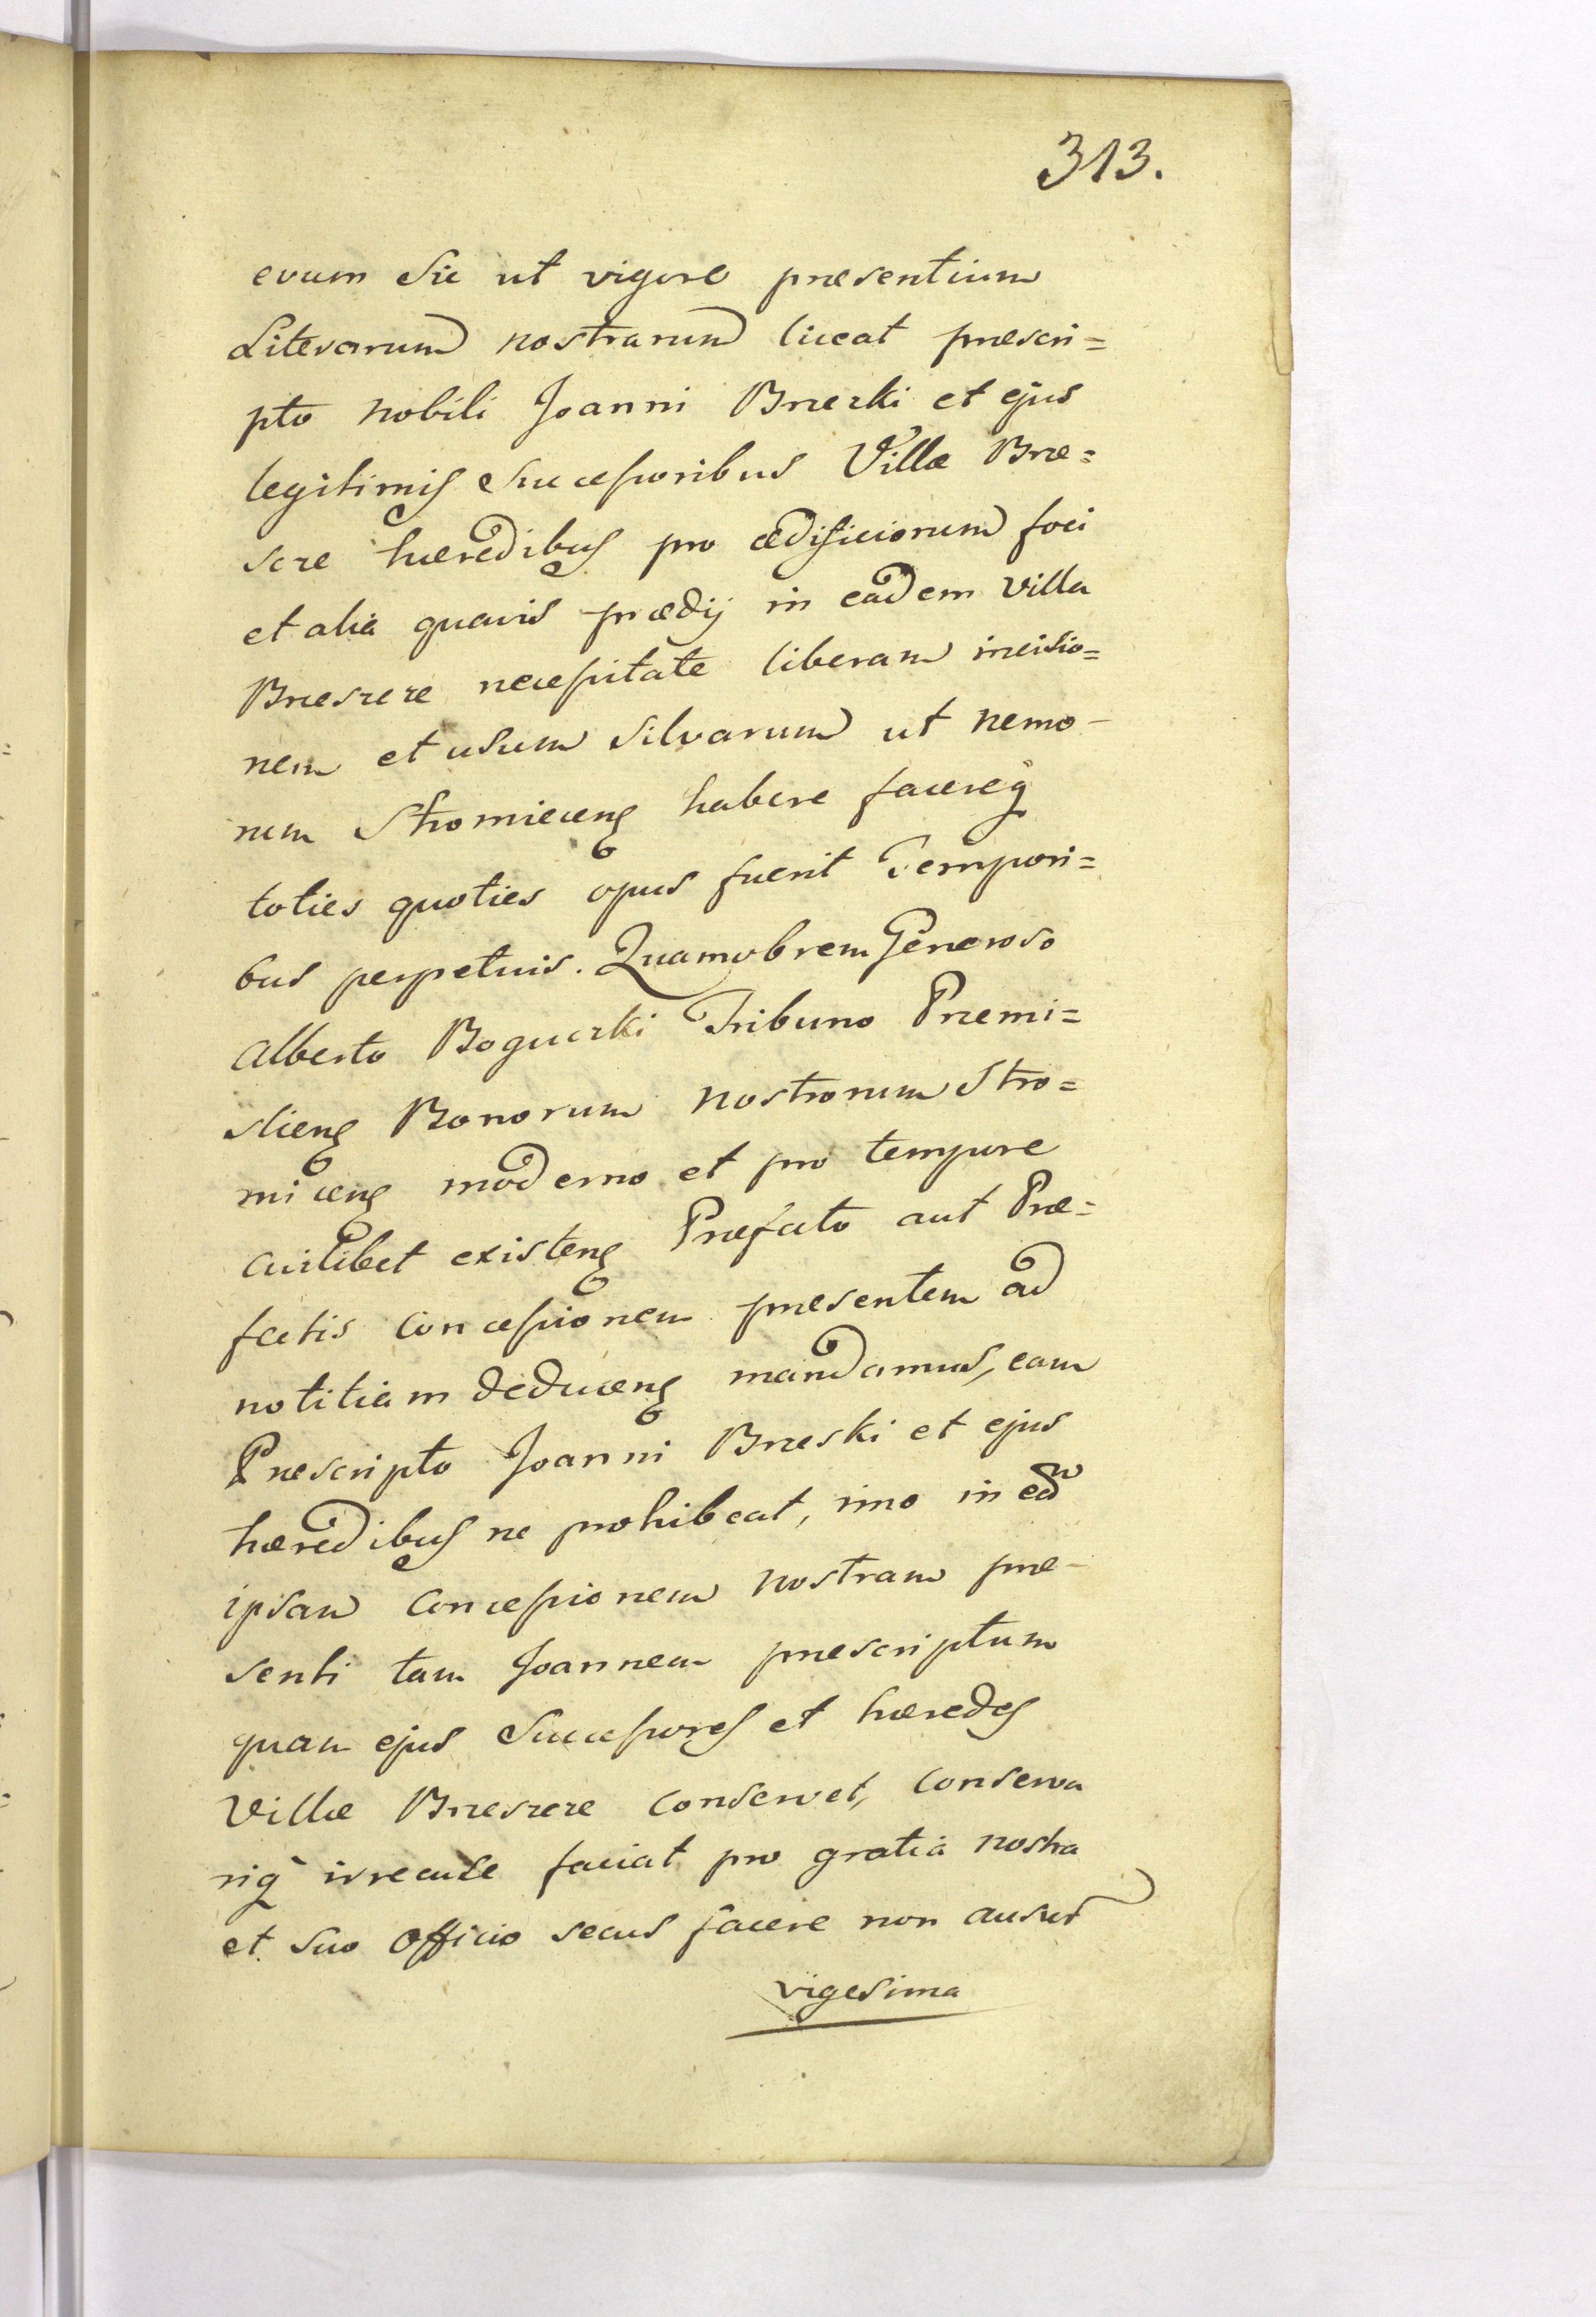 313.
evum Sic ut vigore præsentium
Literarum nostrarum liceat præscri=
pto nobili Joanni Brzezki et ejus
legitimis Successoribus Villæ Brze=
scze hæredibus pro ædificiorum foci
et alia quavis prædij in eadem villa
Brzescze necessitate liberam incisio=
nem et usum Silvarum ut nemo-
rum Stromiecens habere facereq
toties quoties opus fuerit Tempori=
bus perpetuis. Quamobrem Generoso
Alberto Boguczki Tribuno Præmi=
sliens Bonorum nostrorum Stro=
miecens moderno et pro tempore
cuilibet existens Præfecto aut Præ=
fectis concessionem præsentem ad
notitiam deducens mandamus, eam
Præscripto Joanni Brzeski et ejus
hæredibus ne prohibeat, imo in eadm
ipsam concessionem nostram præ-
senti tam Joannem præscriptum
quam ejus Successores et hæredes
Villæ Brzescze conservet, conserva
riq irrecuse faciat pro gratia nostra
et suo officio secus facere non ausus
vigesima